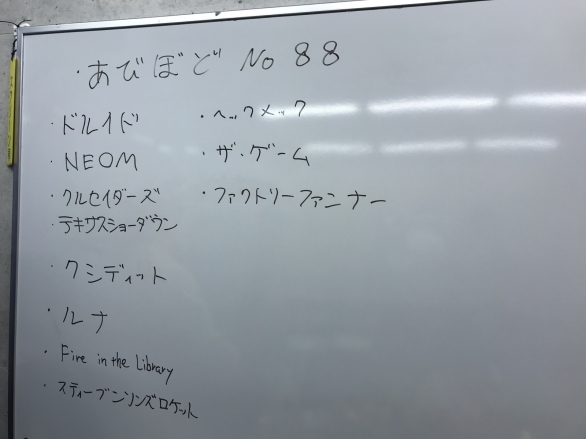 ・あびぼど No 88
・ドルイド
・NEOM
・クルセイダーズ
・テキサスショーダウン
・クシディット
・ルナ
・Fire in the Library
・スティーブンソンズロケット
・ヘックメック
・ザ・ゲーム
・ファクトリーファンナー